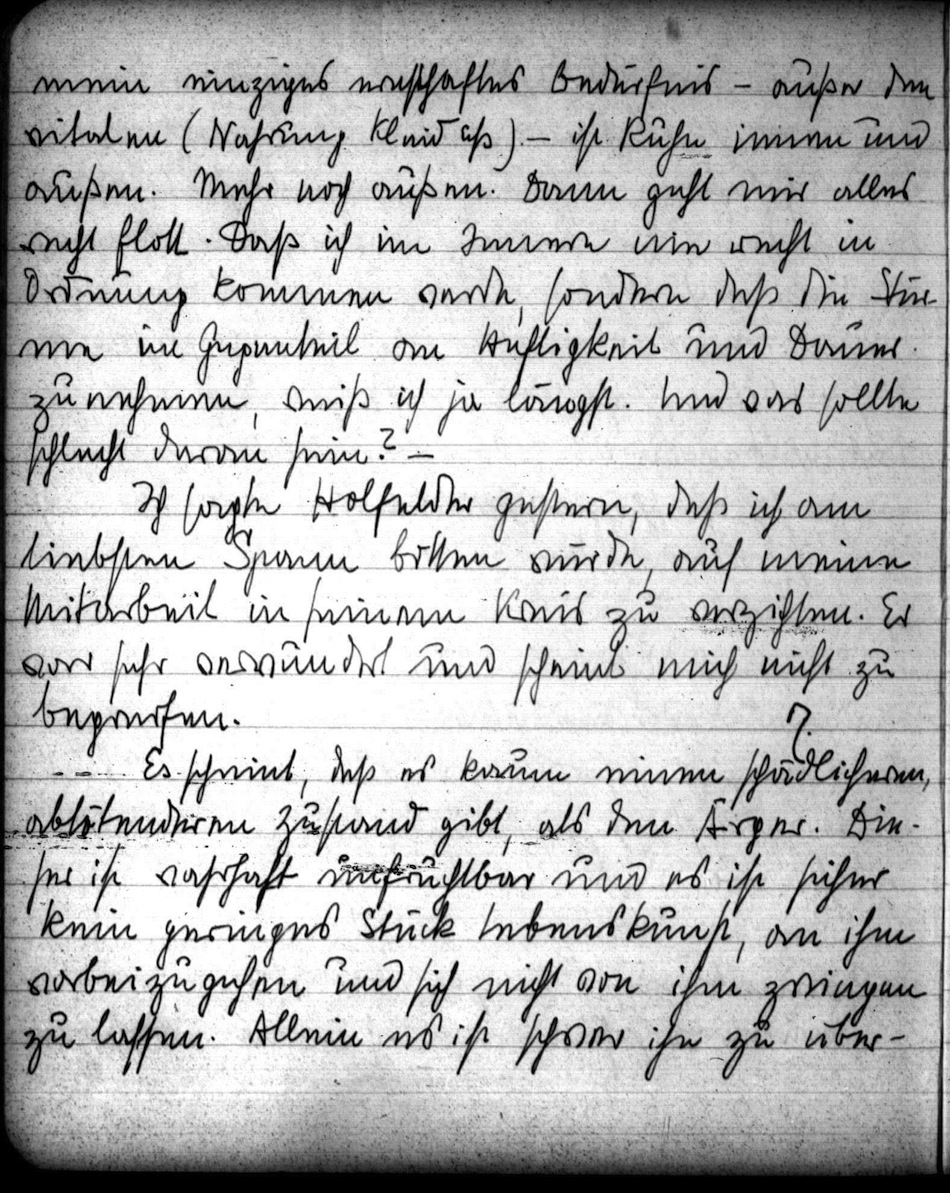 mein einziges ernsthaftes Bedürfnis – außer den
vitalen (Nahrung Kleid etc) – ist Ruhe innen und
außen. Mehr noch außen. Dann geht mir alles
recht flott. Daß ich im Innern nie recht in
Ordnung kommen werde, sondern daß die Stür-
me im Gegenteil an Heftigkeit und Dauer
zunehmen, weiß ich ja längst. Und was sollte
schlecht daran sein? –
Ich sagte Holfelder gestern, daß ich am
liebsten Spann bitten würde, auf meine
Mitarbeit in seinem Kreis zu verzichten. Er
war sehr verwundert und scheint mich nicht zu
begreifen.
?
Es scheint, daß es kaum einen schädlicheren,
abtötenderen Zustand gibt, als den Ärger. Die-
ser ist wahrhaft unfruchtbar und es ist sicher
kein geringes Stück Lebenskunst, an ihm
vorbeizugehen und sich nicht von ihm zwingen
zu lassen. Allein es ist schwer ihn zu über-